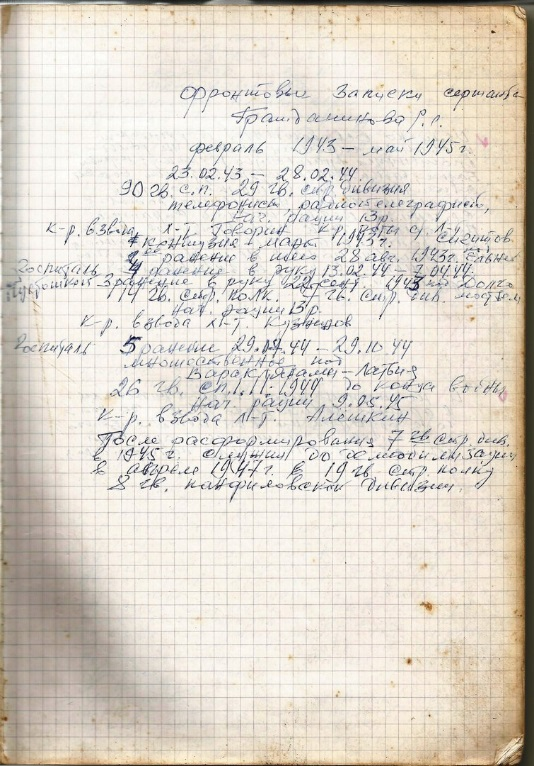 Фронтовые записки сержанта
Гражданинова Г.
февраль 1943 – май 1945 г.
23.02.43 – 28.02.44
90 гв. с.п. 29 гв. стр. дивизия
телефонист радиотелеграфист,
нач. рации 13 р.
к-р. взвода л-т. Говорин к-р. роты
контузия – март 1943 г.
2 ранение в шею 28 авг. 1943 г. Ельня
Госпиталь 4 ранение в руку 13.02.44 – 7.04.44
3 ранение в руку сент. 1943
114 гв. стр. полк. 7 гв. стр. див.
нач. рации 13 р.
к-р. взвода л-т. Кузнецов
Госпиталь 5 ранение 29.07.44 – 29.10.44
множественное под
Латвия
26 гв. сп. 1.11.1944 до конца войны
нач. рации 9.05.45
к-р. взвода л-т. Алёшкин
После расформирования 7 гв. стр. див.
в 1945 г. служил до демобилизации
в апреле 1947 г. в 19 гв. стр. полку
8 гв. панфиловской дивизии.